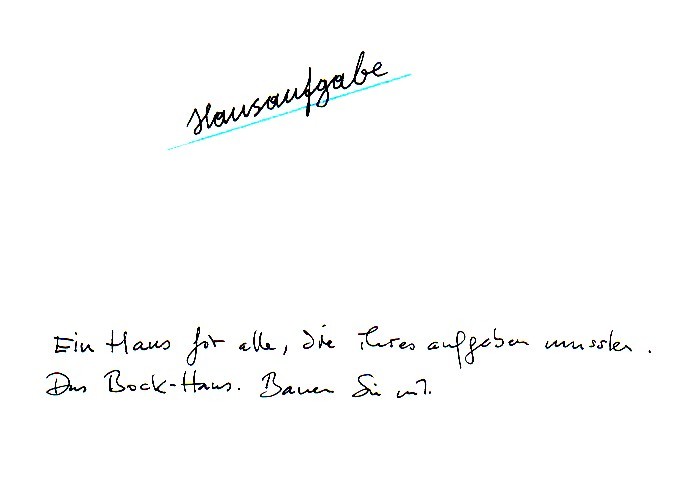 Hausaufgabe
Ein Haus für alle, die ihres aufgeben mussten.
Das Bock-Haus. Bauen Sie mit.